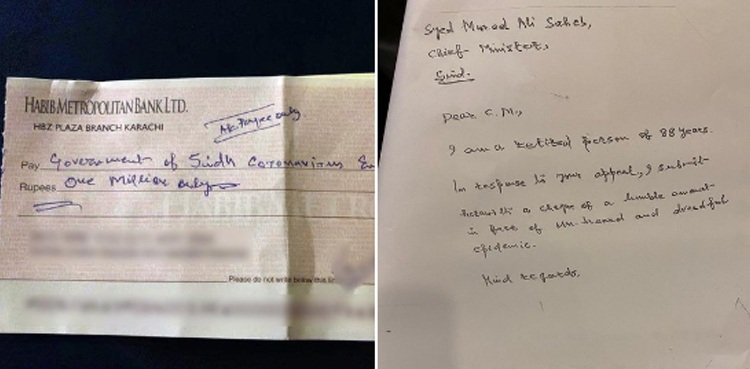 HABIB METROPOLITAN BANK LTD.
HBZ PLAZA BRANCH KARACHI
A/c Payee only.
Pay Government of Sindh Coronavirus
Rupees One Million only
Please do not write below this line
Syed Murad Ali Saheb,
Chief Minister,
Sind.
Dear C.M.,
I am a retired person of 88 years.
In response to your appeal, I submit
herewith a cheque of a humble amount
in face of un-heard and dreadful
epidemic.
Kind regards,